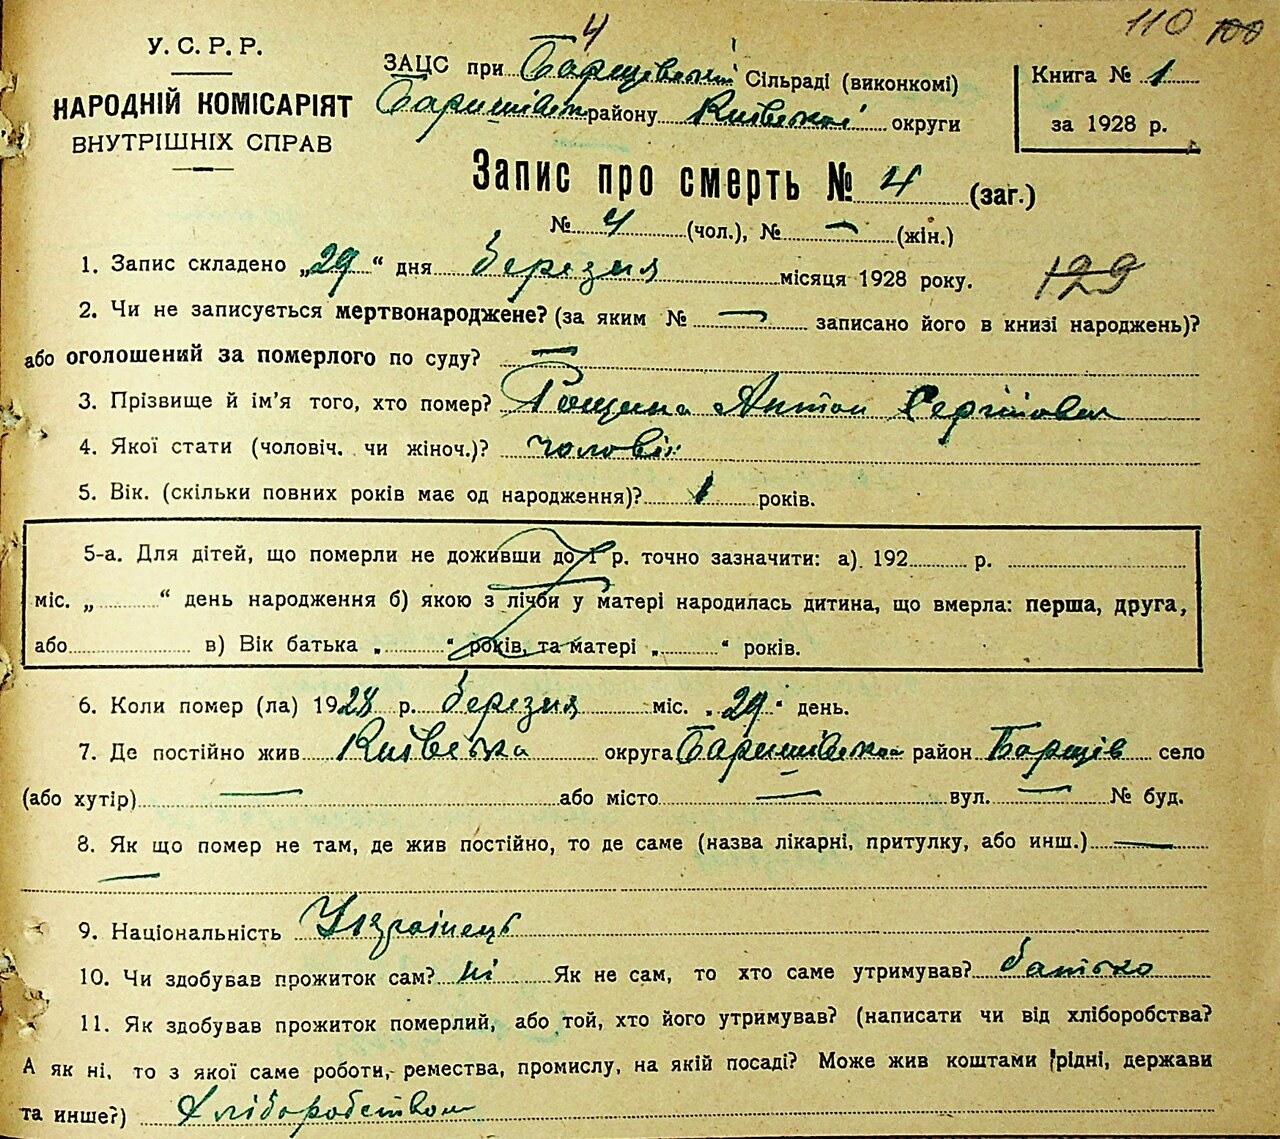 110 100
У. С. Р. Р.
НАРОДНІЙ КОМІСАРІЯТ
ВНУТРІШНІХ СПРАВ
4
ЗАЦС при Борщівській Сільраді (виконкомі)
Баришівськ району Київської округи
Книга № 1
за 1928 р.
Запис про смерть № 4 (заг.)
№ 4 (чол.), № — (жін.)
1. Запис складено „29“ дня березня місяця 1928 року.
129
2. Чи не записується мертвонароджене? (за яким № — записано його в книзі народжень)?
або оголошений за померлого по суду? —
3. Прізвище й ім'я того, хто помер? Рощина Антон Сергійович
4. Якої стати (чоловіч. чи жіноч.)? чоловік
5. Вік. (скільки повних років має од народження)? 1 років.
5-а. Для дітей, що померли не доживши до 1 р. точно зазначити: а) 192 р.
міс. „ “ день народження б) якою з лічби у матері народилась дитина, що вмерла: перша, друга,
або в) Вік батька „ “ років, та матері „ “ років.
6. Коли помер (ла) 1928 р. березня міс. „29“ день.
7. Де постійно жив Київська округа Баришівської район Борщів село
(або хутір) — або місто — вул. — № буд.
8. Як що помер не там, де жив постійно, то де саме (назва лікарні, притулку, або инш.) —
—
9. Національність Українець
10. Чи здобував прожиток сам? ні Як не сам, то хто саме утримував? батько
11. Як здобував прожиток померлий, або той, хто його утримував? (написати чи від хліборобства?
А як ні, то з якої саме роботи, ремества, промислу, на якій посаді? Може жив коштами рідні, держави
та инше?) Хліборобством